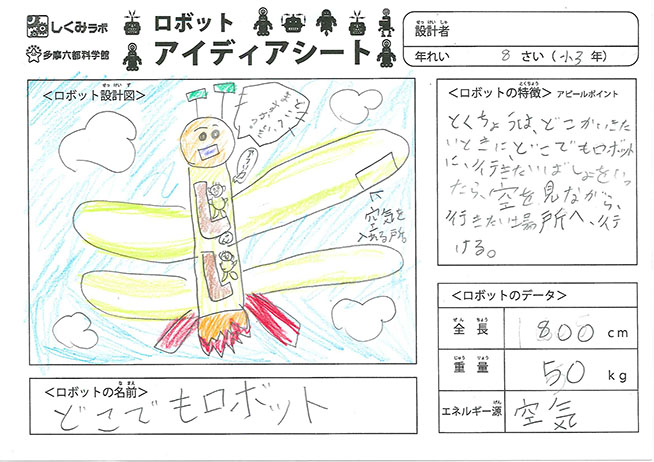 しくみラボ
多摩六都科学館
ロボット
アイディアシート
設計者
せっけいしゃ
年れい 8 さい(小3年)
<ロボット設計図>
せっけいず
空気を
入る所
<ロボットの特徴> アピールポイント
とくちょう
とくちょうは、どこかいきた
いときに、どこでもロボット
に、行きたいばしょをいっ
たら、空を見ながら、
行きたい場所へ、行
ける。
<ロボットのデータ>
全長 800 cm
ぜんちょう
重量 50 kg
じゅうりょう
エネルギー源 空気
げん
<ロボットの名前>
なまえ
どこでもロボット